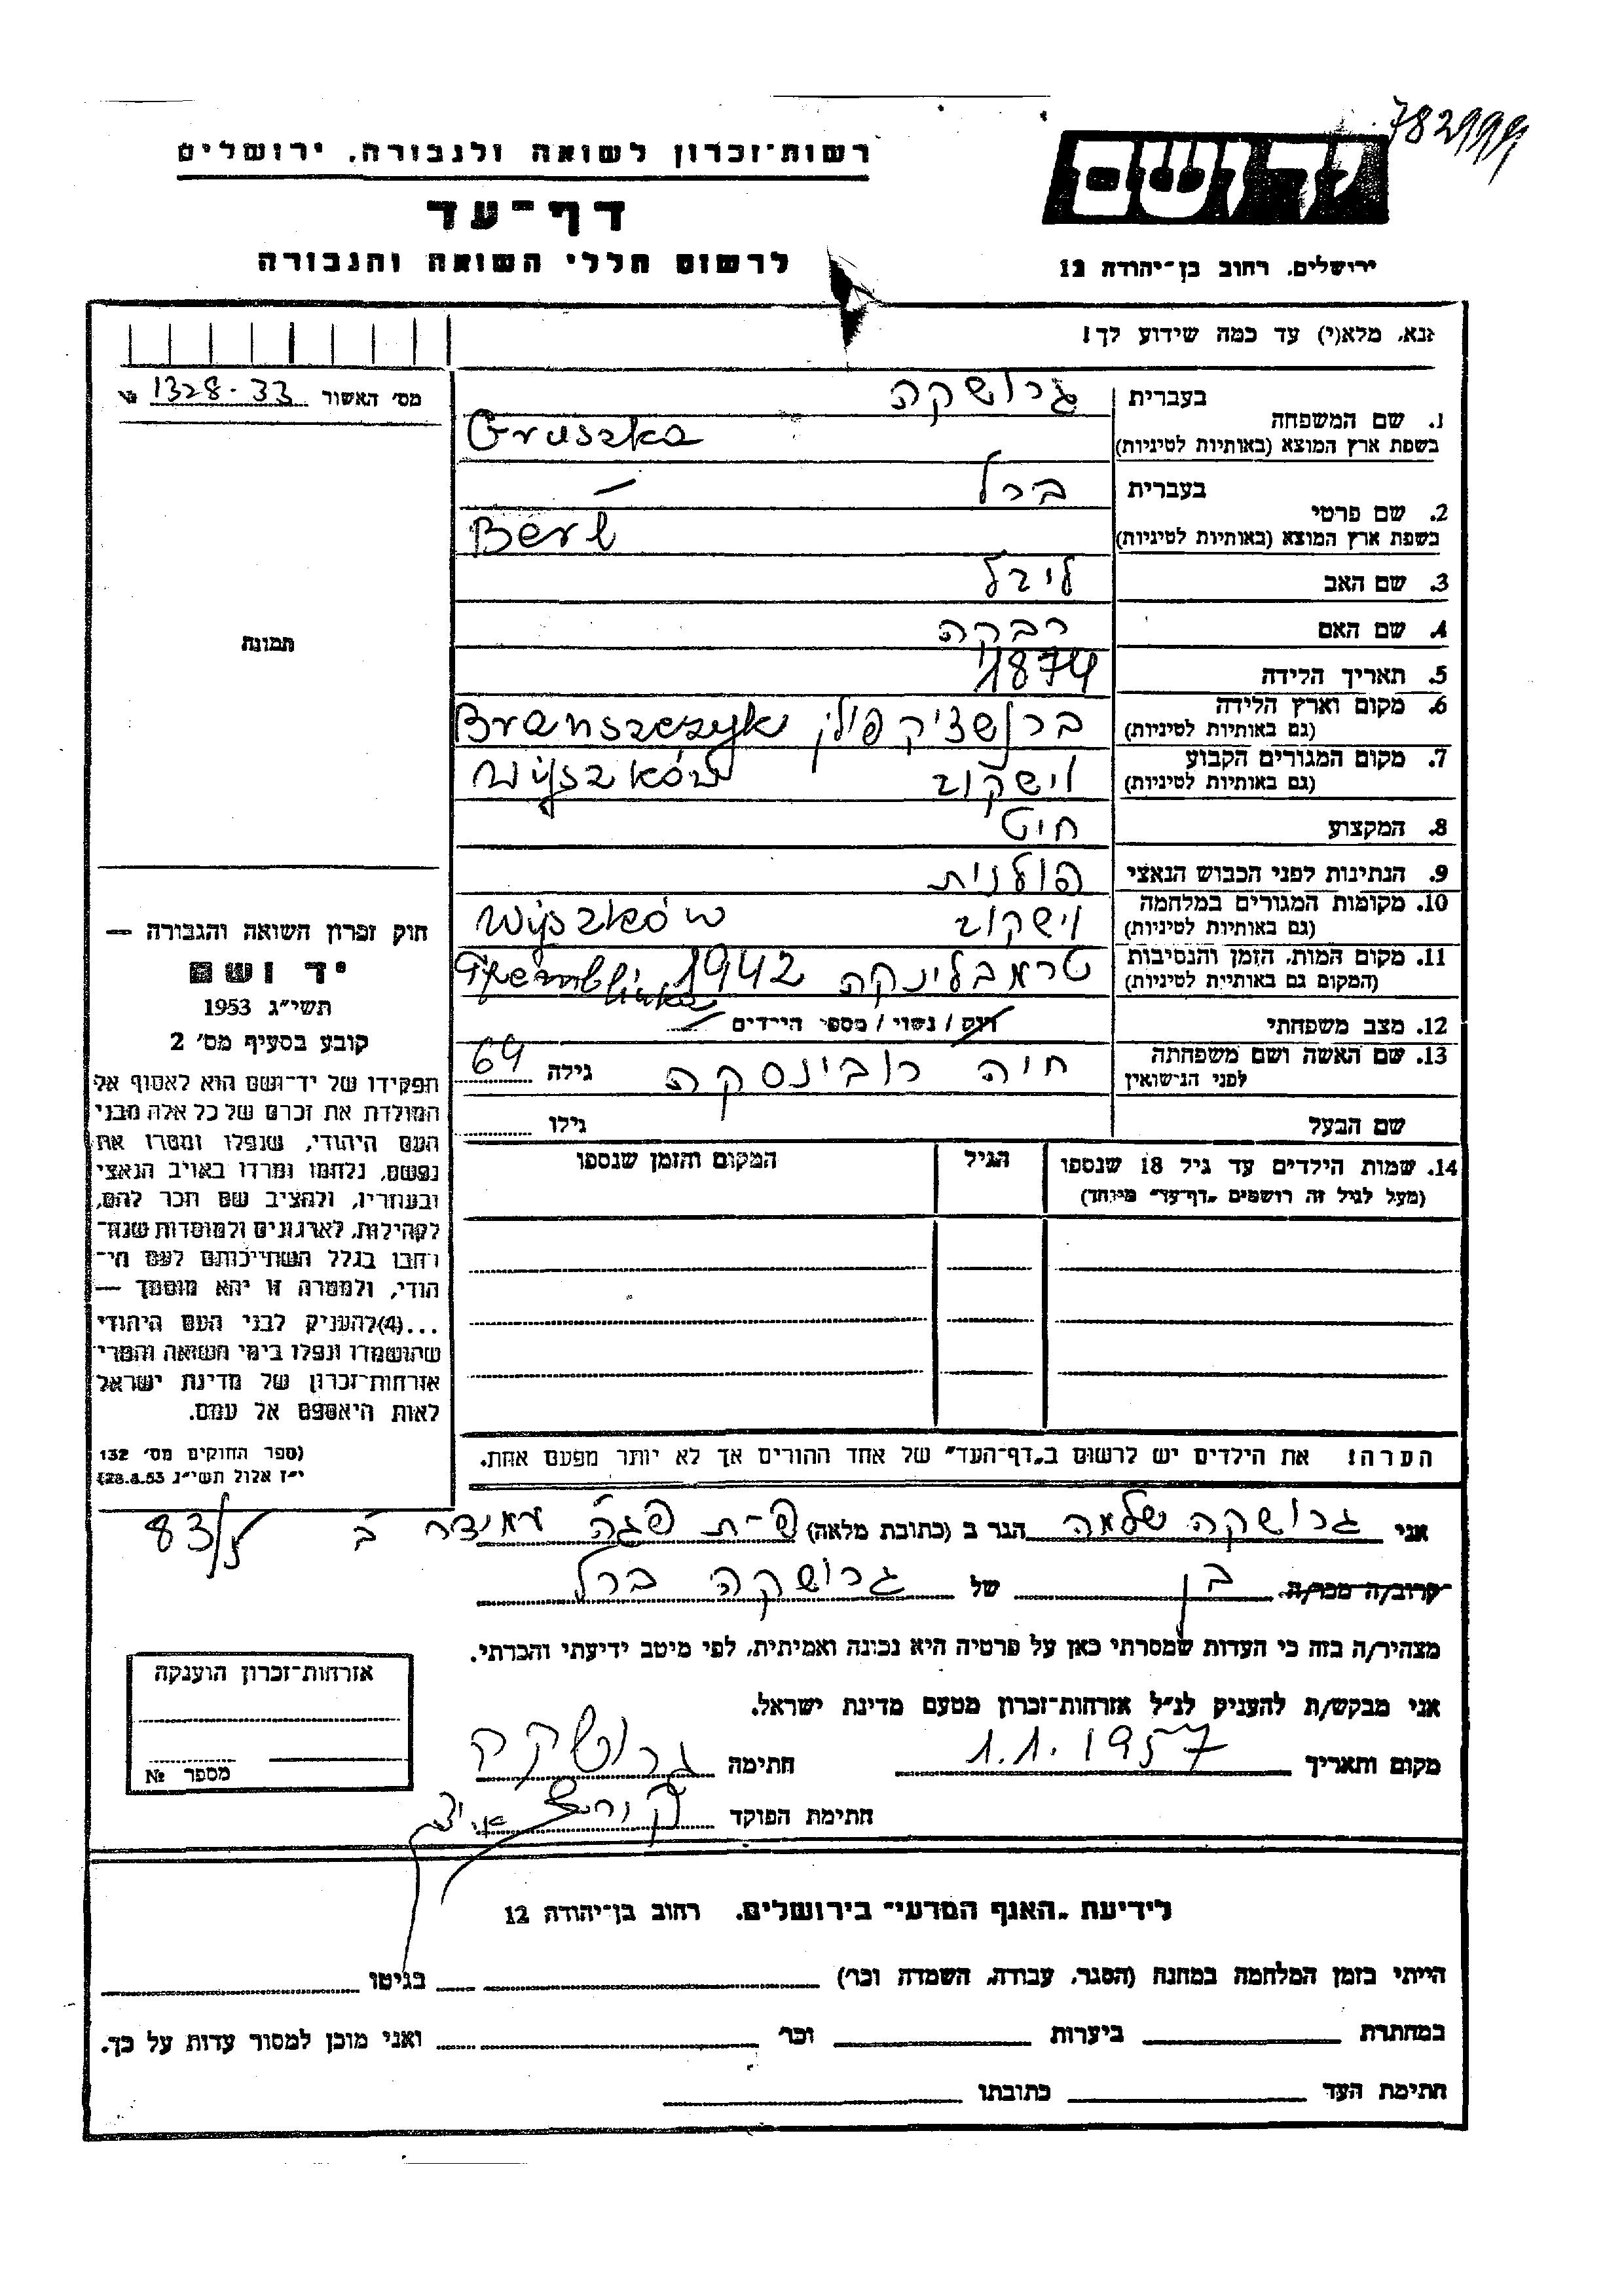 782999
רשות־זכרון לשואה ולגבורה, ירושלים
יד ושם
דף־עד
לרשום חללי השואה והגבורה
ירושלים, רחוב בן־יהודה 12
נא, מלא(י) עד כמה שידוע לך!
מס׳ האשור 1328-33 №
תמונה
1. שם המשפחה
בעברית גרושקה
בשפת ארץ המוצא (באותיות לטיניות) Gruszka
2. שם פרטי
בעברית ברל
בשפת ארץ המוצא (באותיות לטיניות) Berl
3. שם האב ליבל
4. שם האם רבקה
5. תאריך הלידה 1874
6. מקום וארץ הלידה ברנשציק פולין Branszczyk
(גם באותיות לטיניות)
7. מקום המגורים הקבוע וישקוב Wyszków
(גם באותיות לטיניות)
8. המקצוע חיט
9. הנתינות לפני הכבוש הנאצי פולנית
10. מקומות המגורים במלחמה וישקוב Wyszków
(גם באותיות לטיניות)
11. מקום המות, הזמן והנסיבות טרמבלינקה 1942 Tremblinka
(המקום גם באותיות לטיניות)
12. מצב משפחתי רוק / נשוי / מספר הילדים
13. שם האשה ושם משפחתה חיה רובינסקה גילה 64
לפני הנישואין
שם הבעל גילו
14. שמות הילדים עד גיל 18 שנספו הגיל המקום והזמן שנספו
(מעל לגיל זה רושמים „דף־עד״ מיוחד)
הערה: את הילדים יש לרשום ב„דף־העד״ של אחד ההורים אך לא יותר מפעם אחת.
חוק זכרון השואה והגבורה —
יד ושם
תשי״ג 1953
קובע בסעיף מס׳ 2
תפקידו של יד־ושם הוא לאסוף אל
המולדת את זכרם של כל אלה מבני
העם היהודי, שנפלו ומסרו את
נפשם, נלחמו ומרדו באויב הנאצי
ובעוזריו, ולהציב שם וזכר להם,
לקהילות, לארגונים ולמוסדות שנח־
רבו בגלל השתייכותם לעם הי־
הודי, ולמטרה זו יהא מוסמך —
...(4)להעניק לבני העם היהודי
שהושמדו ונפלו בימי השואה והמרי
אזרחות־זכרון של מדינת ישראל
לאות היאספם אל עמם.
(ספר החוקים מס׳ 132
י״ז אלול תשי״ג 28.8.53)
אני גרושקה שלמה הגר ב (כתובת מלאה) פ-ת פגה עמידר ב 83/5
קרוב/ה מכר/ה בן של גרושקה ברל
מצהיר/ה בזה כי העדות שמסרתי כאן על פרטיה היא נכונה ואמיתית, לפי מיטב ידיעתי והכרתי.
אני מבקש/ת להעניק לנ״ל אזרחות־זכרון מטעם מדינת ישראל.
מקום ותאריך 1.1.1957 חתימה גרושקה
חתימת הפוקד
אזרחות־זכרון הוענקה
מספר №
לידיעת „האגף המדעי״ בירושלים, רחוב בן־יהודה 12
הייתי בזמן המלחמה במחנה (הסגר, עבודה, השמדה וכו׳) בגיטו
במחתרת ביערות וכו׳ ואני מוכן למסור עדות על כך.
חתימת העד כתובתו